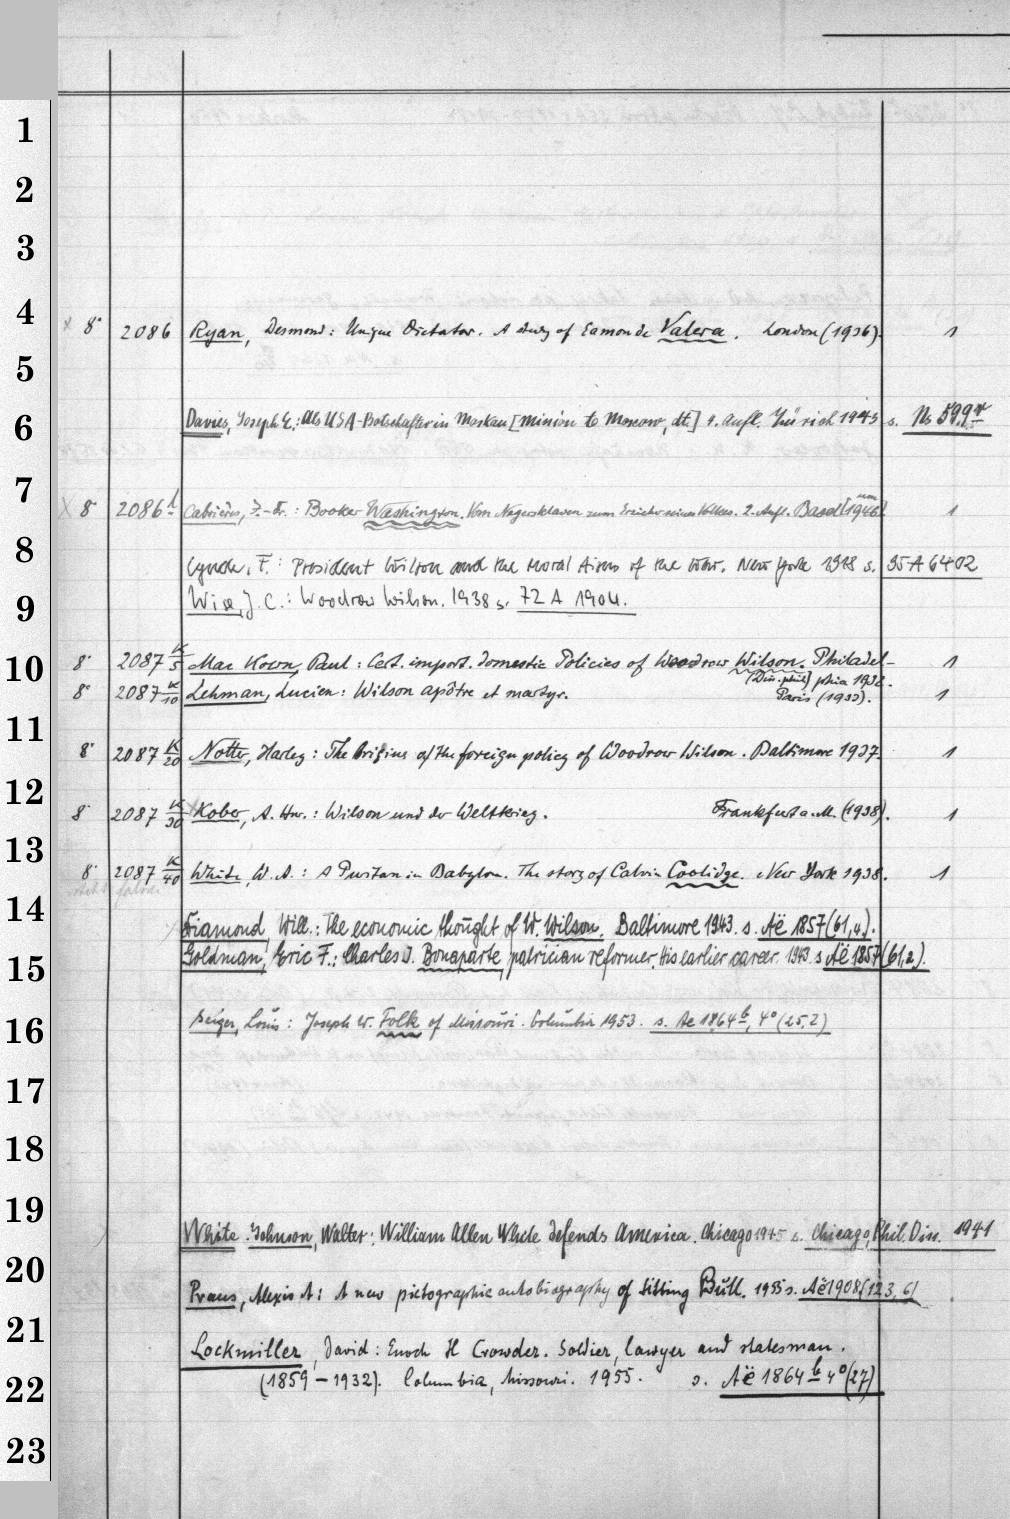 1
2
3
4
x 8° 2086 Ryan, Desmond: Unique Dictator. A study of Eamon de Valera. London (1936). 1
5
6
Davies, Joseph E.: Als USA-Botschafter in Moskau [Mission to Moscow, dt.] 1. Aufl. Zürich 1943 s. Ns 599
7
x 8° 2086 h Cabrières, J.-Fr.: Booker Washington. Vom Negersklaven zum Erzieher seines Volkes. 2. Aufl. Basel [um 1946] 1
8
Lynch, F.: President Wilson and the Moral Aims of the War. New York 1918 s. 95 A 6402
9
Wise, J. C.: Woodrow Wilson. 1938 s. 72 A 1904.
10
8° 2087 K/5 Mac Kown, Paul: Cert. import. domestic Policies of Woodrow Wilson. Philadel- 1
(Diss. phil) phia 1932.
8° 2087 K/10 Lehman, Lucien: Wilson apôtre et martyr. Paris (1933). 1
11
8° 2087 K/20 Notter, Harley: The Origins of the foreign policy of Woodrow Wilson. Baltimore 1937. 1
12
8° 2087 K/30 Kober, A. Hnr.: Wilson und der Weltkrieg. Frankfurt a. M. (1938). 1
13
8° 2087 K/40 White, W. A.: A Puritan in Babylon. The story of Calvin Coolidge. New York 1938. 1
14
Diamond, Will.: The economic thought of W. Wilson. Baltimore 1943. s. Aë 1857 (61,4).
15
Goldman, Eric F.: Charles J. Bonaparte, patrician reformer. His earlier career. 1943 s Aë 1857 (61,2).
16
Geiger, Louis: Joseph W. Folk of Missouri. Columbia 1953. s. Ae 1864 b, 4° (25,2)
17
18
19
White. Johnson, Walter: William Allen White defends America. Chicago 1945 s. Chicago, Phil. Diss. 1941
20
Praus, Alexis A: A new pictographic autobiography of Sitting Bull. 1955 s. Aë 1908 (123, 6)
21
Lockmiller, David: Enoch H Crowder. Soldier, lawyer and statesman.
22
(1859 – 1932). Columbia, Missouri. 1955. s. Aë 1864 b 4° (27)
23